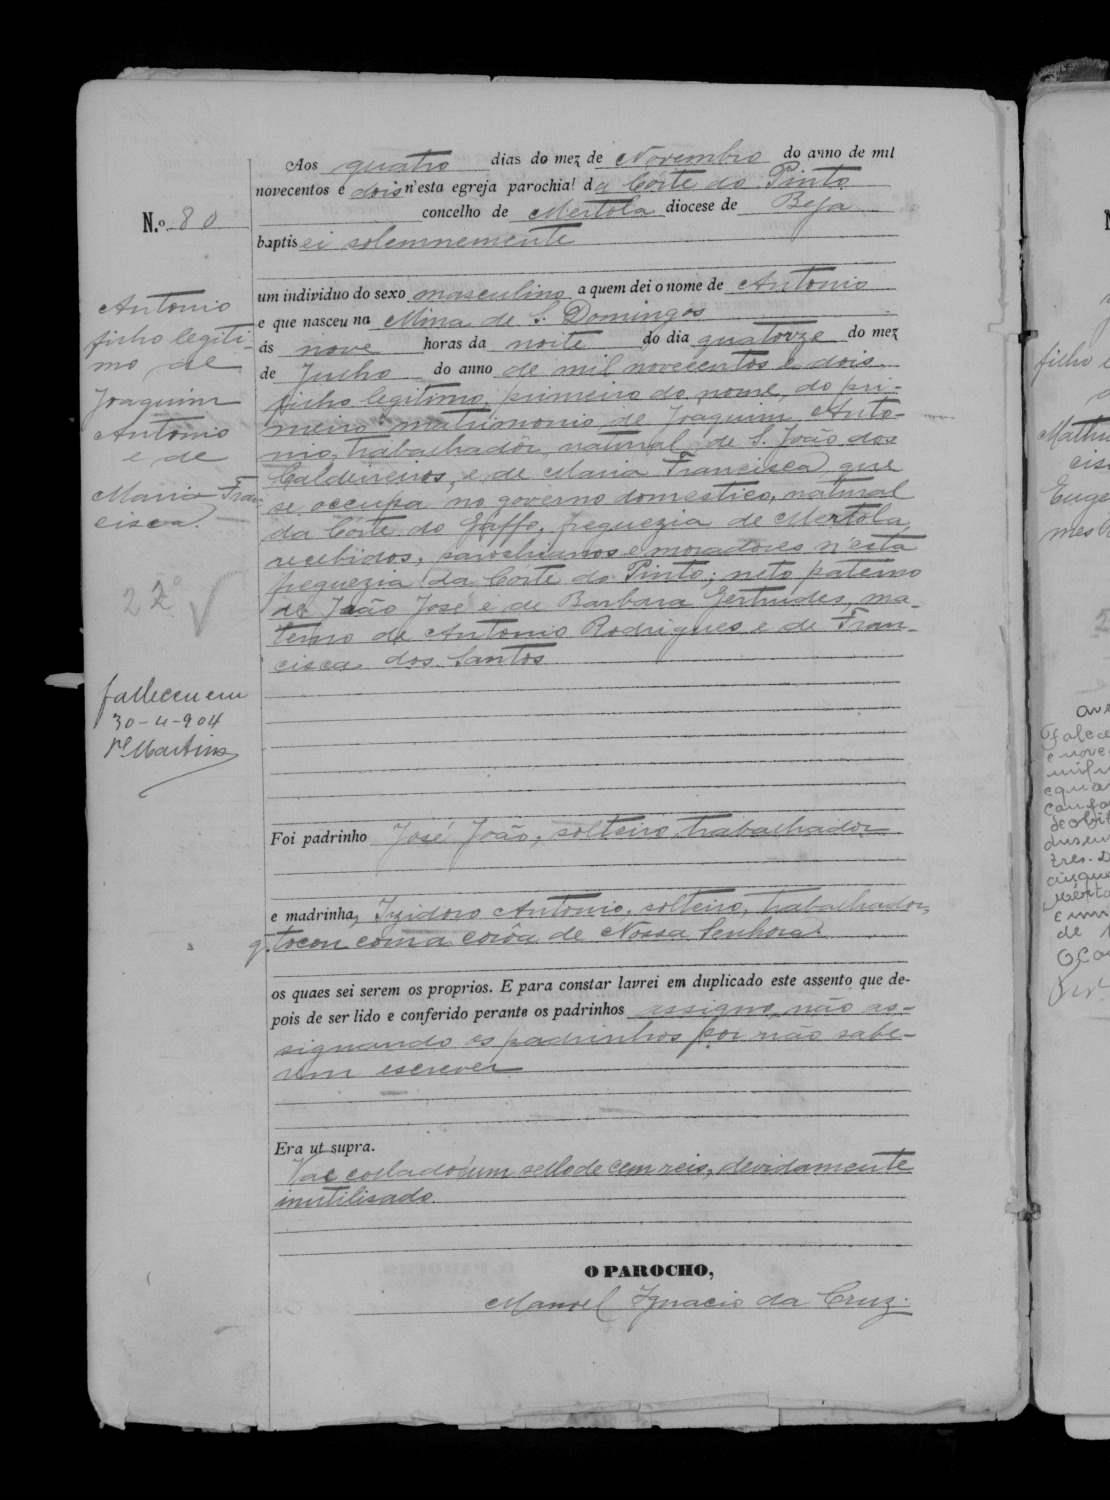 Aos quatro dias do mez de Novembro do anno de mil
novecentos e dois n'esta egreja parochial da Côrte do Pinto
concelho de Mertola diocese de Beja
N.o 80
baptisei solemnemente
um individuo do sexo masculino a quem dei o nome de Antonio
e que nasceu na Mina de S. Domingos
ás nove horas da noite do dia quatorze do mez
de Julho do anno de mil novecentos e dois
filho legitimo, primeiro do nome, do pri-
meiro matrimonio de Joaquim Anto-
nio, trabalhador, natural de S. João dos
Caldeireiros, e de Maria Francisca que
se occupa no governo domestico, natural
da Côrte do Gaffo, freguezia de Mertola,
recebidos, parochianos e moradores n'esta
freguezia da Côrte do Pinto; neto paterno
de João José e de Barbara Gertrudes, ma-
terno de Antonio Rodrigues e de Fran-
cisca dos Santos
Antonio
filho legiti-
mo de
Joaquim
Antonio
e de
Maria Fran-
cisca.
22º
falleceu em
30-4-904
Martins
Foi padrinho José João, solteiro, trabalhador
e madrinha, Izidoro Antonio, solteiro, trabalhador,
q. tocou com a corôa de Nossa Senhora
os quaes sei serem os proprios. E para constar lavrei em duplicado este assento que de-
pois de ser lido e conferido perante os padrinhos assigno, não as-
signando os padrinhos por não sabe-
rem escrever
Era ut supra.
Vae collado um sello de cem reis, devidamente
inutilisado.
O PAROCHO,
Manoel Ignacio da Cruz.
filho